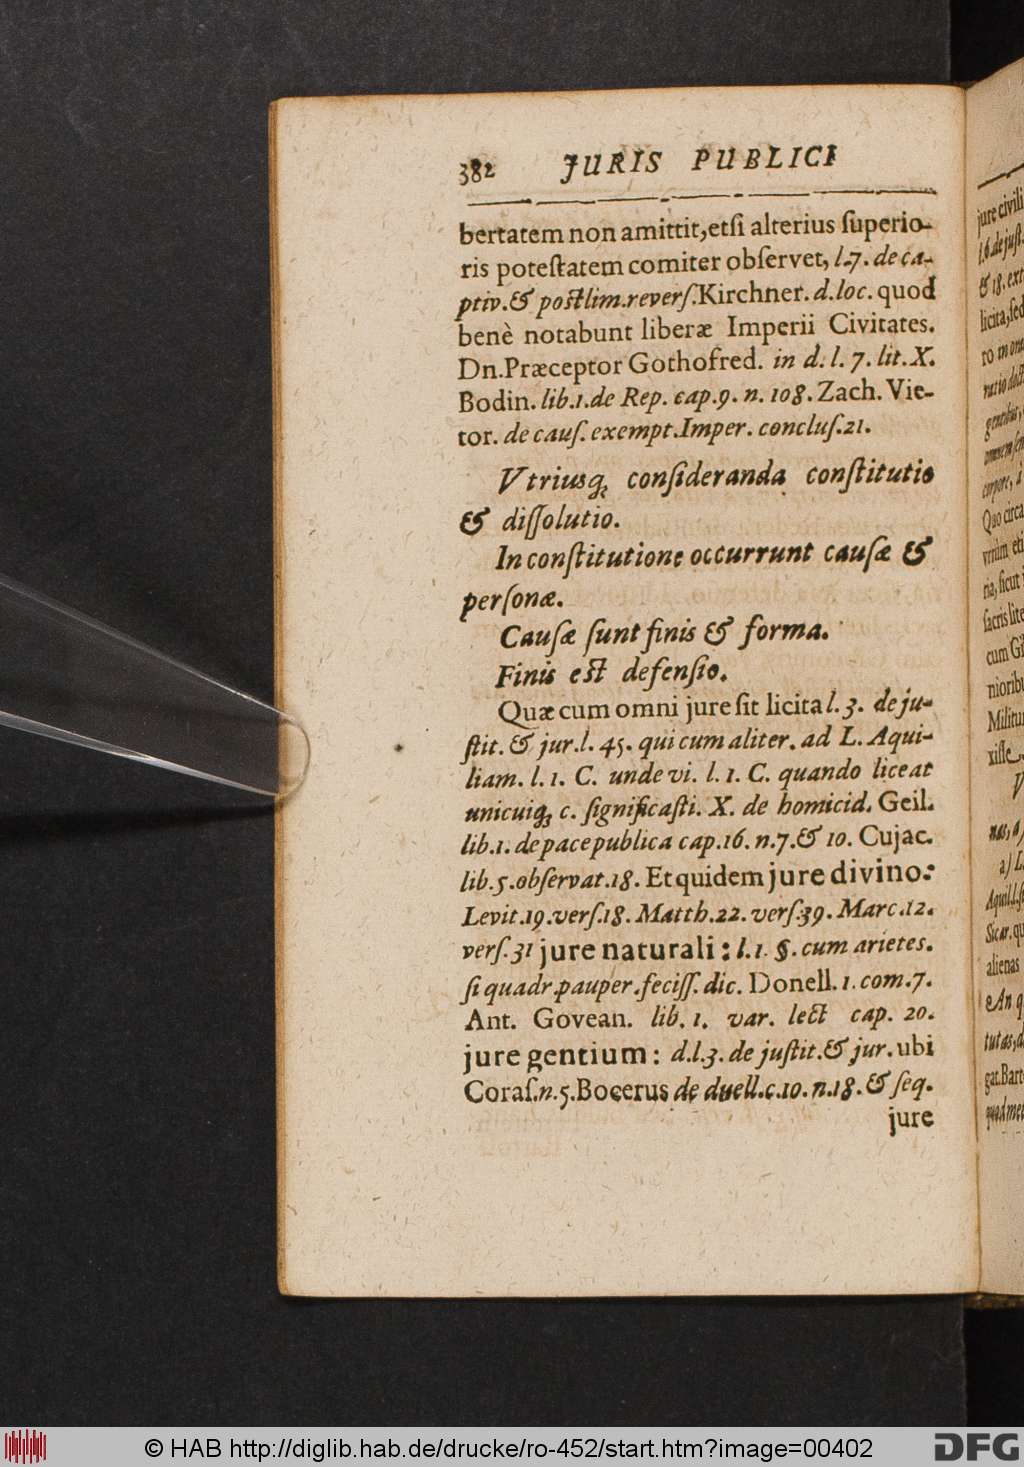 382 JURIS PUBLICI
bertatem non amittit, etſi alterius ſuperio-
ris poteſtatem comiter obſervet, l.7. de ca-
ptiv. & poſtlim. reverſ. Kirchner. d. loc. quod
benè notabunt liberæ Imperii Civitates.
Dn. Præceptor Gothofred. in d. l. 7. lit. X.
Bodin. lib.1. de Rep. cap.9. n. 108. Zach. Vie-
tor. de cauſ. exempt. Imper. concluſ. 21.
Vtriusq; conſideranda conſtitutio
& diſſolutio.
In conſtitutione occurrunt cauſæ &
perſonæ.
Cauſæ ſunt finis & forma.
Finis eſt defenſio.
Quæ cum omni jure ſit licita l. 3. de ju-
ſtit. & jur. l. 45. qui cum aliter. ad L. Aqui-
liam. l. 1. C. unde vi. l. 1. C. quando liceat
unicuiq; c. ſignificaſti. X. de homicid. Geil.
lib.1. de pace publica cap.16. n.7. & 10. Cujac.
lib.5. obſervat. 18. Et quidem jure divino:
Levit.19. verſ.18. Matth.22. verſ.39. Marc.12.
verſ. 31 jure naturali: l.1. §. cum arietes.
ſi quadr. pauper. feciſſ. dic. Donell. 1. com. 7.
Ant. Govean. lib. 1. var. lect cap. 20.
jure gentium: d.l.3. de juſtit. & jur. ubi
Coraſ. n.5. Bocerus de duell. c.10. n.18. & ſeq.
jure
jure civili
l.6. de juſt.
& 18. ext
licita, ſed
gentibus,
corpore,
Quo circa
ria, ſicut
ſacris lite
cum Gi
nioribu
Militur
xiſſe
V
nas, a
a) L.
Aquil. l. ſ
Sicar. qu
alienas
An q
gat. Bart
quod met
© HAB http://diglib.hab.de/drucke/ro-452/start.htm?image=00402
DFG